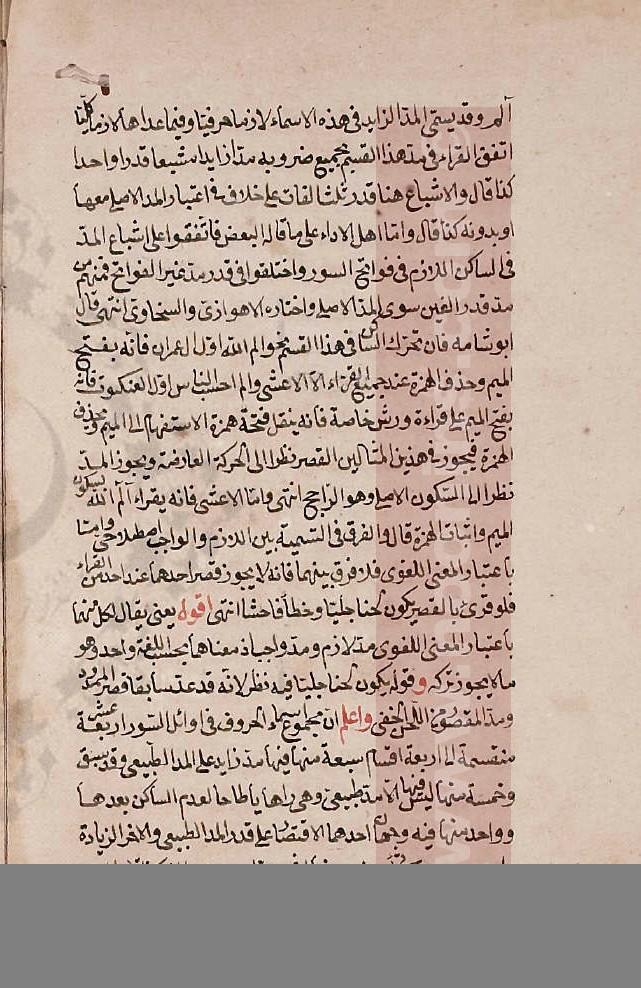 الم وقد يسمى المد الزايد في هذه الاسماء لازما حرفيا وفيما عداها لازما كلميا
اتفق القراء في مد هذا القسم بجميع ضروبه مدا زايدا مشبعا قدرا واحدا
كذا قال والاشباع هنا قدر ثلث الفات على خلاف في اعتبار المد الاصلي معها
او بدونه كذا قال واما اهل الاداء على ما قاله البعض فاتفقوا على اشباع المد
في الساكن اللازم في فواتح السور واختلفوا في قدر مد غير الفواتح فمنهم من
مد قدر الفين سوى المد الاصلي واختاره الاهوازي والسخاوي انتهى قال
ابو شامه فان تحرك الساكن في هذا القسم نحو الم الله اول ال عمران فانه بفتح
الميم وحذف الهمزة عند جميع القراء الا الاعشى والم احسب الناس اول العنكبوت فانه
بفتح الميم على قراءة ورش خاصة فانه ينقل فتحة همزة الاستفهام الى الميم ويحذف
الهمزة فيجوز في هذين المثالين القصر نظرا الى الحركة العارضة ويجوز المد
نظرا الى السكون الاصلي وهو الراجح انتهى واما الاعشى فانه يقراء الم الله بسكون
الميم واثبات الهمزة قال والفرق في التسمية بين اللازم والواجب اصطلاحي واما
باعتبار المعنى اللغوى فلا فرق بينهما فانه لا يجوز قصر احدهما عند احد من القراء
فلو قرئ بالقصر يكون لحنا جليا وخطأ فاحشا انتهى اقول يعني يقال لكل منهما
باعتبار المعنى اللغوى مد لازم ومد واجب اذ معناهما بحسب اللغة واحد وهو
ما لا يجوز تركه وقوله يكون لحنا جليا فيه نظر لانه قد عد سابقا قصر الممدود
ومد المقصور من اللحن الخفى واعلم ان مجموع اسماء الحروف في اوائل السور اربعة عشر
منقسمة الى اربعة اقسام سبعة منها فيها مد زايد على المد الطبيعى وقد سبق
وخمسة منها ليس فيها الا مد طبيعى وهي را ها يا طا حا لعدم الساكن بعدها
وواحد منها فيه وجهان احدهما الاقتصار على قدر المد الطبيعى والاخر الزيادة